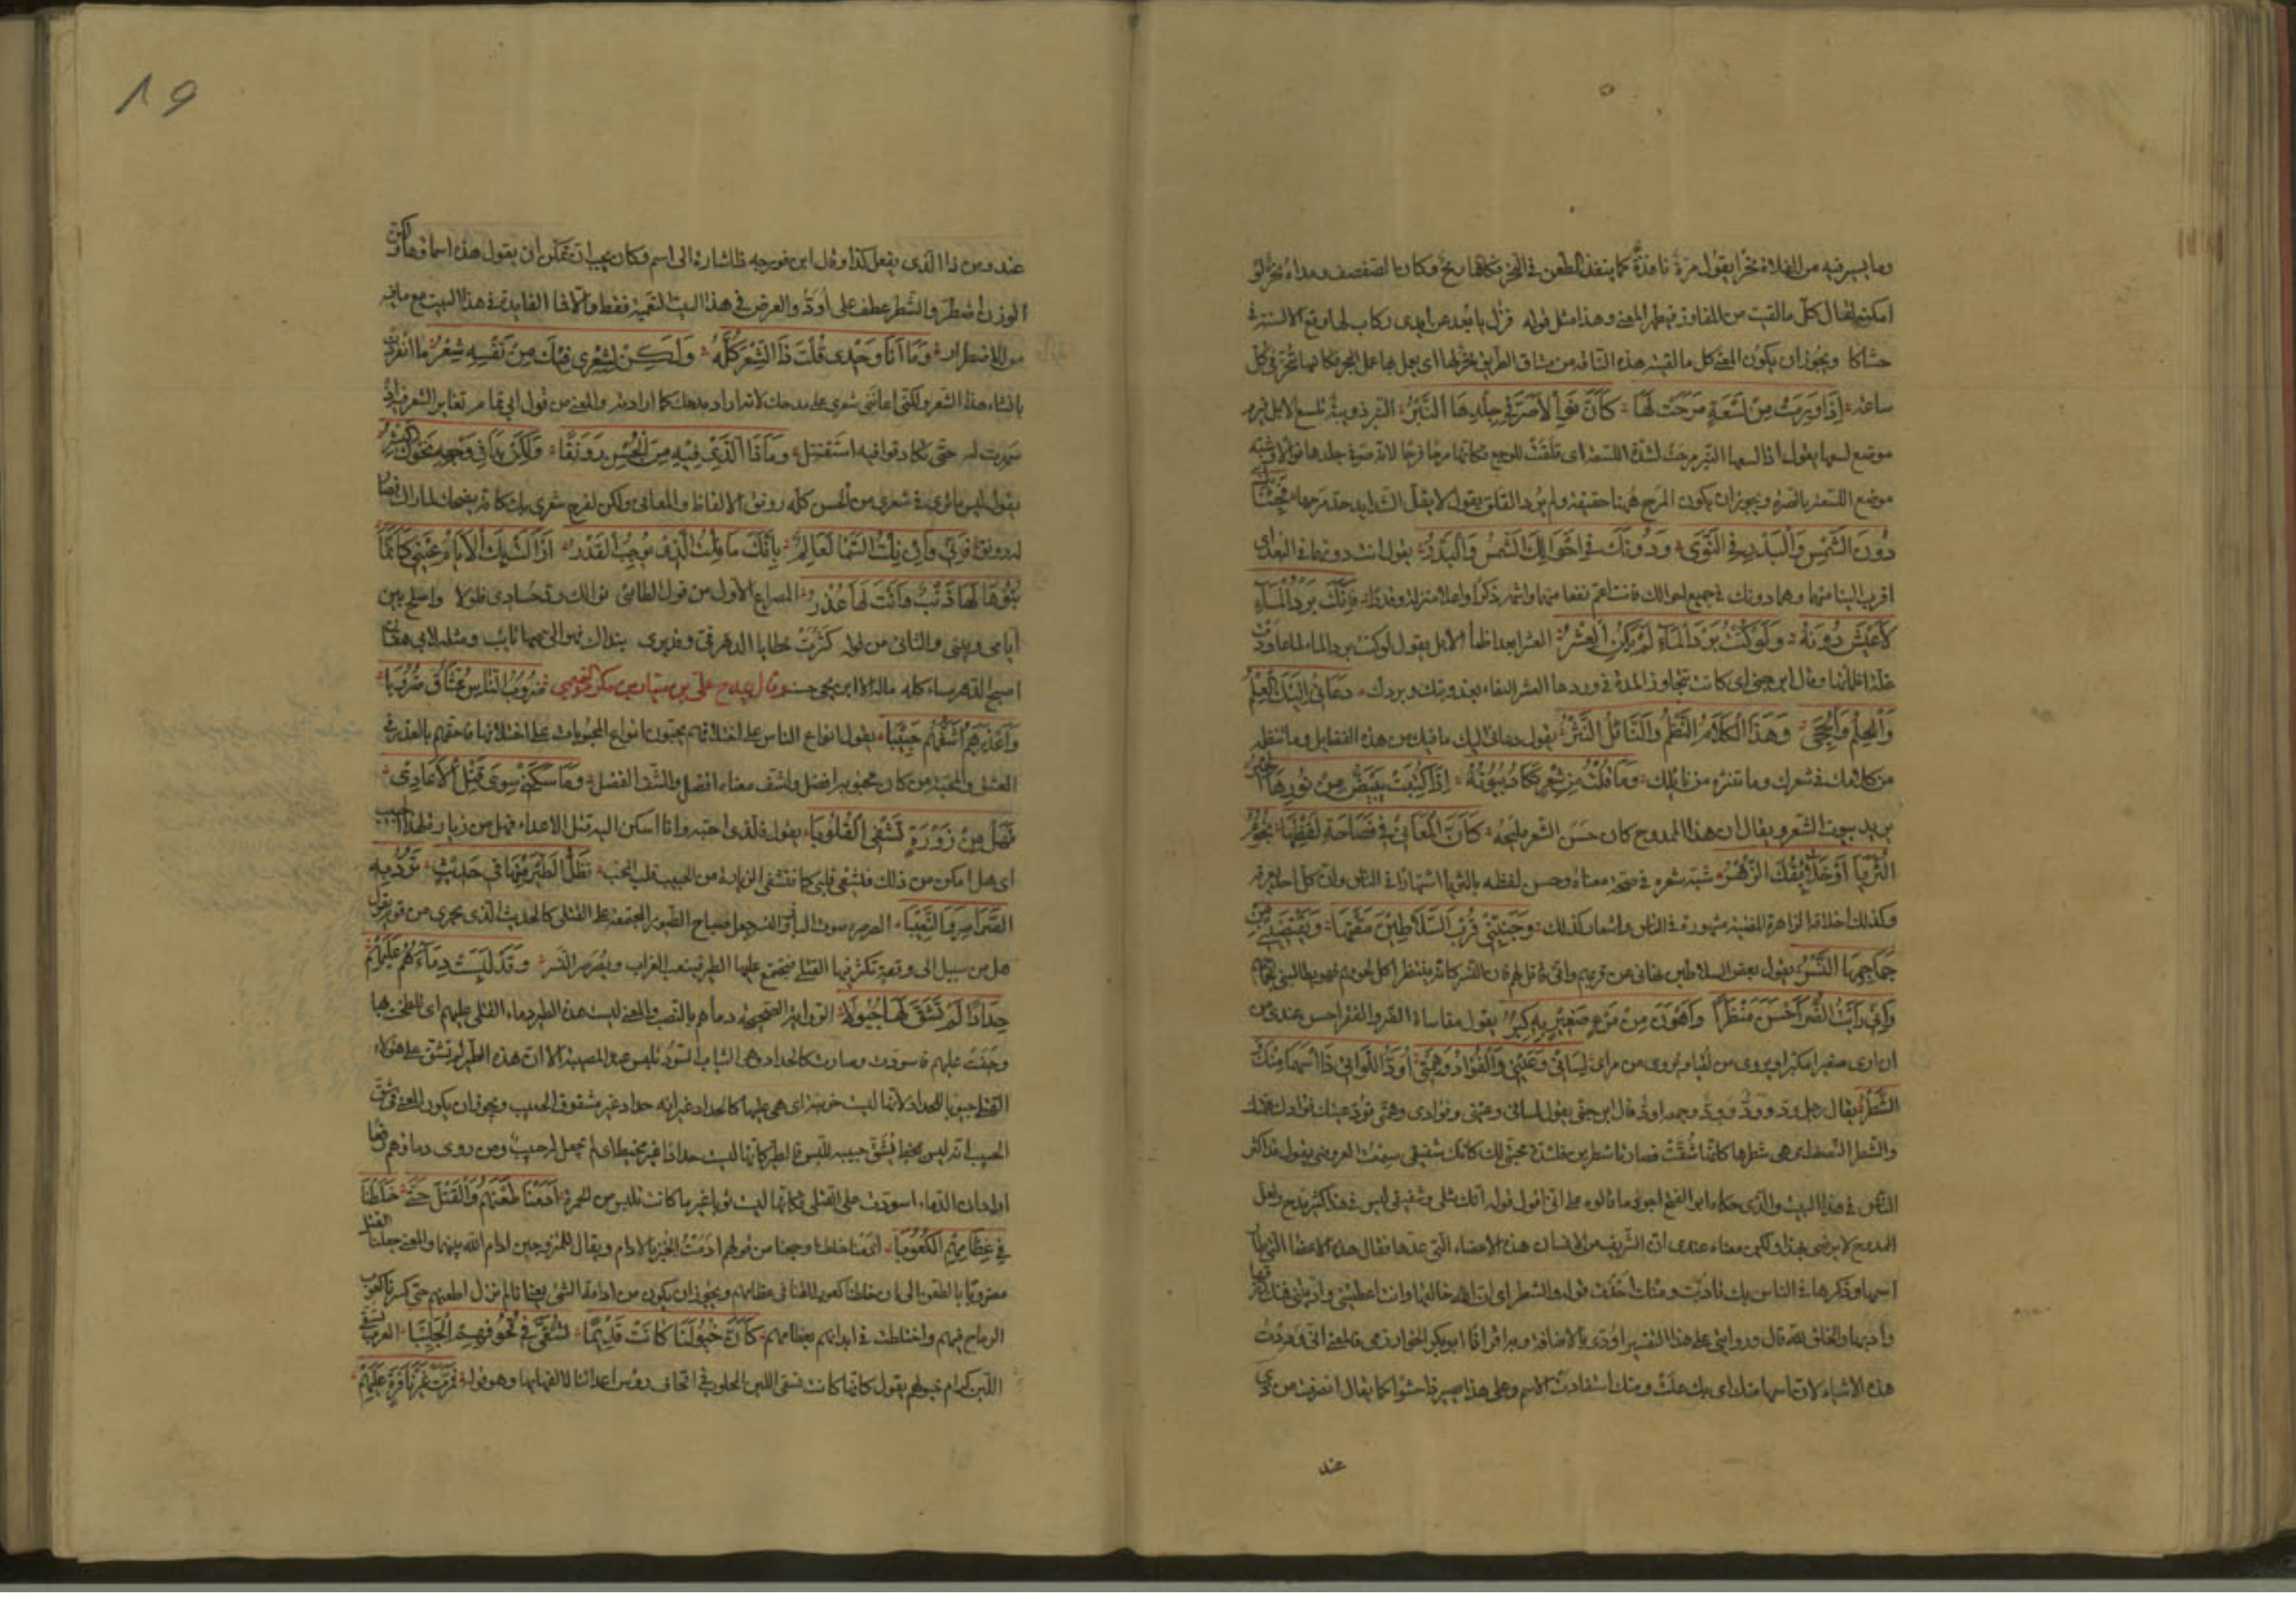 وما يسير فيه من الفلاة نخرا يقول مرة نافذة كما ينفذ الطعن في النحر فكأنها رمح وكان الصفصف ومداه نحر لو
امكنه لقال كل ما لقيت من المفاوز فيظهر المعنى وهذا مثل قوله فزل يا بعد عن ايدى ركاب لها وقع الاسنة في
حشاكا ويجوز ان يكون المعنى كل ما لقيته هذه الناقة من مشاق الطريق نحر لها اى يعمل بها عمل النحر فكانها تنحر في كل
ساعة اِذَا وَرِمَتْ مِنْ لَسْعَةٍ مَرِحَتْ لَهَا كَأَنَّ نَوَالاً صَرَّ فِي جِلْدِهَا النِّبْرُ النبر دويبة تلسع الابل فيرم
موضع لسعها يقول اذا لسعها النبر مرحت لشدة اللسعة اى قلقت للوجع فكانها مرحا فرحا لانه صر في جلدها نوالا وشبه
موضع اللسعة بالصرة ويجوز ان يكون المرح ههنا حقيقة ولم يرد القلق يقول لا يقل الشدايد حد مرحها فَجِئْنَاكَ
دُونَ الشَّمْسِ وَالْبَدْرِ فِي النَّوَى وَدُونَكَ فِي اَحْوَالِكَ الشَّمْسُ وَالْبَدْرُ يقول انت دونهما في البعد اى
اقرب الينا منهما وهما دونك في جميع احوالك فانت اعم نفعا منهما واشهر ذكرا واعلا منزلة وقدرا كَأَنَّكَ بَرْدُ الْمَاءِ
لاَ عَيْشَ دُونَهُ وَلَوْ كُنْتَ بَرْدَ الْمَاءِ لَمْ يَكُنِ الْعِشْرُ العشر ابعد اظماء الابل يقول لو كنت برد الماء لما عاودت
غلة اظمأنا وقال ابن جنى اى كانت تتجاوز المدة في وردها العشر لغناء بعذوبتك وبردك دَعَانِي اِلَيْكَ الْعِلْمُ
وَالْحِلْمُ وَالْحِجَى وَهَذَا الْكَلاَمُ النَّظْمُ وَالنَّائِلُ النَّثْرُ يقول دعانى اليك ما فيك من هذه الفضايل وما تنظم
من كلامك في شعرك وما تنثره من نائلك وَمَا قُلْتُ مِنْ شِعْرٍ تَكَادُ بُيُوتُهُ اِذَا كُتِبَتْ يَبْيَضُّ مِنْ نُورِهَا الْحِبْرُ
يريد بيوت الشعر ويقال ان هذا الممدوح كان حسن الشعر مليحه كَأَنَّ الْمَعَانِي فِي فَصَاحَةِ لَفْظِهَا نُجُومُ
الثُّرَيَّا أَوْ خَلاَئِقُكَ الزُّهْرُ شبه شعره في صحة معناه وحسن لفظه بالثريا اشتهارا في الناس وان كل احد يعرفه
وكذلك اخلاقه الزاهرة المضيئة مشهورة في الناس واشعاره كذلك وَجَنَّبَنِي قُرْبَ السَّلاَطِينَ مَقْتُهَا وَمَا يَقْتَضِينِي مِنْ
جَمَاجِمِهَا النَّسْرُ يقول بغض السلاطين نهانى عن قربهم وانى قاتل لهم كأن النسر كانه ينتظر اكل لحومهم فهو يطالبنى بجماجمهم
وَاِنِّي رَأَيْتُ الضُّرَّ أَحْسَنَ مَنْظَرًا وَأَهْوَنَ مِنْ مَرْءٍ صَغِيرٍ بِهِ كِبْرُ يقول مقاساة الضر والفقر احسن عندى من
ان ارى صغيرا متكبرا ويروى من لقيا ويروى من مرأى لِسَانِي وَعَيْنِي وَالْفُؤَادُ وَهِمَّتِي أَوُدُّ اللَّوَاتِي ذَا اسْمُهَا مِنْكَ
الشَّطْرُ يقال رجل ود وودّ وودّ وجمعه اودّ قال ابن جنى يقول لسانى وعينى وفؤادى وهمتى تودّ عينك فؤادك همتك
والشطر النصف اى هى شطرها كانها شقت فصارتا شطرين فلشدة محبتى لك كانك شقيقى سمعت العروضى يقول هذا اكثر
الناس في هذا البيت والذى حكاه ابو الفتح اجود ما قالوه على انى اقول قوله انك مثلى وشقيقى ليس في هذا كثير مدح ولعل
الممدوح لا يرضى بهذا ولكن معناه عندى ان الشريف من الانسان هذه الاعضاء التى عدها فقال هذه الاعضاء التى طار
اسمها وذكرها في الناس بك تادبت ومنك اخذت قوله والشطر اى ان الله خالقها وانت اعطيتنى وادبتنى فمنك رزقها
وادبها والخلق لله قال وروايتى على هذا التفسير اودى بالاضافة وبه اقرأنا ابو بكر الخوارزمى فالمعنى انى وددت
هذه الاشياء لان اسمها منك اى بك علت ومنك استفادت الاسم وعلى هذا يصير ذا حشوا كما يقال انصرفت من ذى
عند
٨٩
عند ومن ذا الذى يفعل كذا وقال ابن فورجه ذا اشارة الى اسم وكان يجب ان يمكن ان يقول هذه اسماؤها ولكن
الوزن اضطره والشطر عطف على اودّ والغرض في هذا البيت التعمية فقط والا فما الفايدة في هذا البيت مع ما فيه
من الاضطرار وَمَا أَنَا وَحْدِي قُلْتُ ذَا الشِّعْرَ كُلَّهُ وَلَكِنْ لِشِعْرِي فِيكَ مِنْ نَفْسِهِ شِعْرُ ما انفردت
بانشاء هذا الشعر ولكن اعاننى شعرى على مدحك لانه اراد مدحك كما اردته والمعنى من قول ابى تمام تغاير الشعر فيه اذ
سهرت له حتى تكاد قوافيه تستقتل وَمَا ذَا الَّذِي فِيهِ مِنَ الْحُسْنِ رَوْنَقًا وَلَكِنْ بَدَا فِي وَجْهِهِ نَحْوَكَ الْبِشْرُ
يقول ليس ما ترى في شعرى من الحسن كله رونق الالفاظ والمعانى ولكن لفرح شعرى بك كانه يضحك لما راك فصار
له رونق فَإِنِّي وَاِنْ نِلْتَ السَّمَا لَعَالِمٌ بِأَنَّكَ مَا نِلْتَ الَّذِي يُوجِبُ الْقَدْرُ أَزَالَتْ بِكَ الأَيَّامُ عَتْبِي كَأَنَّمَا
بَنُوهَا لَهَا ذَنْبٌ وَأَنْتَ لَهَا عُذْرُ المصراع الاول من قول الطائى نوالك رد حسادى فلولا واصلح بين
ايامى وبينى والثانى من قوله كثرت خطايا الدهر فى وقد يرى بنداك وهو الى منها تائب ومثله لابى هفان
اصبح الدهر مسيئا كله ماله الا ابن يحيى حسنه وقال يمدح على بن سيار بن مكرم التميمى ضُرُوبُ النَّاسِ عُشَّاقٌ ضُرُوبَا
وَأَعْذَرُهُمْ أَشَفُّهُمُ حَبِيبَا يقول انواع الناس على اختلافهم يحبون انواع المحبوبات على اختلافها فاحقهم بالعذر في
العشق والمحبة من كان محبوبه افضل واشف معناه افضل والشف الفضل وَمَا سَكَنِي سِوَى قَتْلِ الأَعَادِي
فَهَلْ مِنْ زَوْرَةٍ تَشْفِي الْقُلُوبَا يقول فالذى احبه وانا اسكن اليه قتل الاعداء فهل من زيارة لهذا الحبيب
اى هل امكن من ذلك فيشفى قلبى كما تشفى الزيارة من الحبيب قلب المحب تَظَلُّ الطَّيْرُ مِنْهَا فِي حَدِيثٍ تَرُدُّ بِهِ
الصَّرَاصِرَ وَالنَّعِيبَا الصرصرة صوت البازى والنسر جعل صياح الطيور المجتمعة على القتلى كالحديث الذى يجرى من قوم يقول
هل من سبيل الى وقعة تكثر فيها القتلى فيجتمع عليها الطير فينعب الغراب ويصرصر النسر وَقَدْ لَبِسَتْ دِمَاءَهُمُ عَلَيْهِمْ
حِدَادًا لَمْ تَشُقَّ لَهَا جُيُوبَا الرواية الصحيحة دماءهم بالنصب والمعنى لبست هذه الطير دماء القتلى عليهم اى تلطخت بها
وجفت عليهم فاسودت وصارت كالحداد وهى الثياب السود تلبس عند المصيبة الا ان هذه الطير لم تشق على هؤلاء
القتلى جيوبا للحداد لانها ليست حزينة اى هى عليها كالحداد غير انه حداد غير مشقوق الجيب ويجوز ان يكون المعنى في شق
الجيب انه ليس مخيطا فيشق جيبه للبس فالطير كانها لبست حدادا غير مخيط اى لم يجعل له جيب ومن روى دماؤهم رفعا
اراد ان الدماء اسودت على القتلى فكانها لبست ثوبا غير ما كانت تلبس من الحمرة أَدَمْنَا طَعْنَهُمْ وَالْقَتْلَ حَتَّى خَلَطْنَا
فِي عِظَامِهِمِ الْكُعُوبَا ادمنا خلطنا وجمعنا من قولهم ادمت الخبز بالادام ويقال للمتزوجين ادام الله بينهما والمعنى جعلنا القتل
مقرونا بالطعن الى ان خلطنا كعوب القنا في عظامهم ويجوز ان يكون من ادامة الشئ يعنى انا لم نزل اطعنهم حتى كسرنا كعوب
الرماح فيهم واختلطت في ابدانهم بعظامهم كَأَنَّ خُيُولَنَا كَانَتْ قَدِيمًا تُسَقَّى فِي قُحُوفِهِمِ الْحَلِيبَا العرب تسقى
اللبن كرام خيولهم يقول كانها كانت تسقى اللبن الحليب في اقحاف رؤس اعدائنا لالفها بها وهو قوله فَمَرَّتْ غَيْرَ نَافِرَةٍ عَلَيْهِمْ